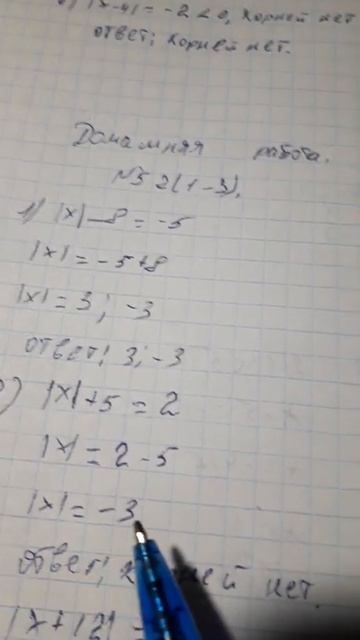 |x-4| = -2 < 0, корней нет
ответ; корней нет.
Домашняя работа.
№5 2(1-3).
1) |x|-8 = -5
|x| = -5+8
|x| = 3; -3
ответ; 3; -3
|x|+5 = 2
|x| = 2-5
|x| = -3
ответ; нет.
|x+12| =